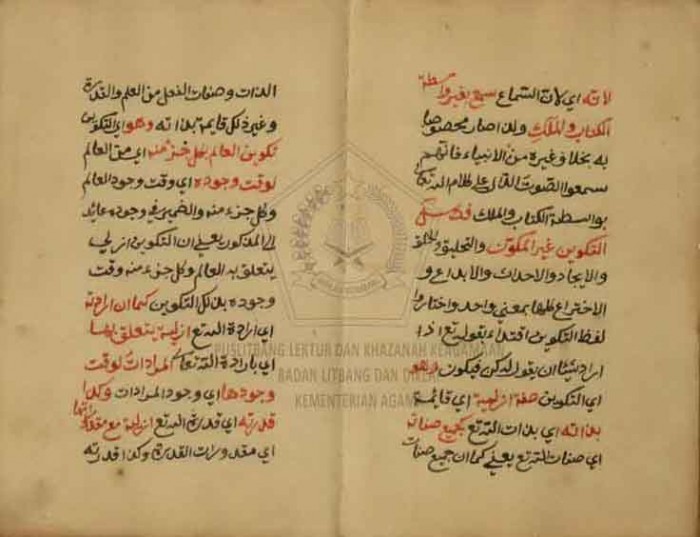 لانه اي لان السماع سمع بغير واسطة
الكتاب والملك ولذا صار مخصوصا
به بخلاف غيره من الانبياء فانهم
سمعوا الصوت الدال على كلام الله تع
بواسطة الكتاب والملك
التكوين غير المكون والتخليق والخلق
والايجاد والاحداث والابداع و
الاختراع كلها بمعنى واحد واختاروا
لفظ التكوين اقتداء بقوله تع اذا
اراد شيئا ان يقول له كن فيكون وهو
اي التكوين صفة ازلية اي قائمة
بذاته اي بذات الله تع كجميع صفاته
اي صفات الله تع يعني كما ان جميع صفات
الذات وصفات الفعل من العلم والقدرة
وغير ذلك قايمة بذاته وهو اي التكوين
تكوين العالم بكل جزء منه اي من العالم
لوقت وجوده اي وقت وجود العالم
وكل جزء منه والضمير في وجوده عايد
الى المذكور يعني ان التكوين ازلي
يتعلق به العالم وكل جزء منه وقت
وجوده بذلك التكوين كما ان ارادة
اي ارادة الله تع ازلية يتعلق بها
اي بارادة الله تعا المرادات لوقت
وجودها اي وجود المرادات وكذا
قدرته اي قدرة الله تع ازلية مع مقدوراتها
اي مقدورات القدرة وكذا قدرته
PUSLITBANG LEKTUR DAN KHAZANAH KEAGAMAAN
BADAN LITBANG DAN DIKLAT
KEMENTERIAN AGAMA